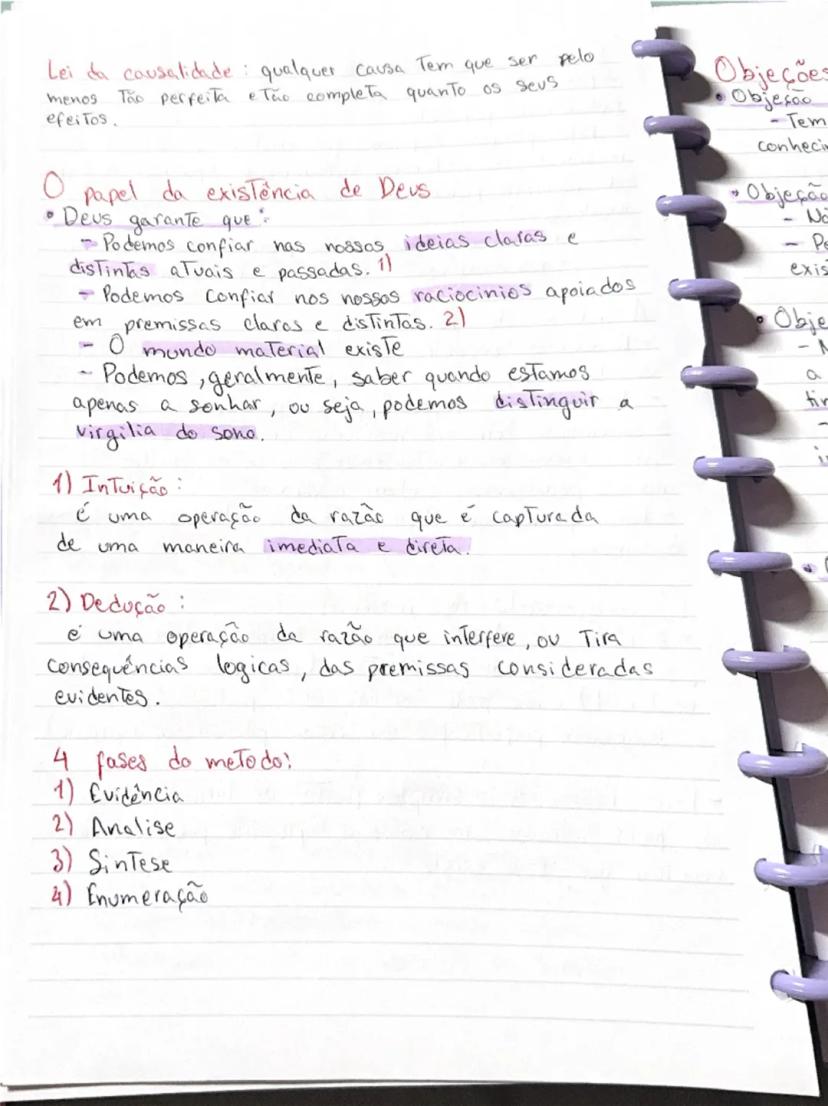 Lei da causalidade: qualquer causa tem que ser pelo
menos tão perfeita e tão completa quanto os seus
efeitos.
O papel da existência de Deus
• Deus garante que:
- Podemos confiar nas nossas ideias claras e
distintas atuais e passadas. 1)
- Podemos confiar nos nossos raciocinios apoiados
em premissas claras e distintas. 2)
- O mundo material existe
- Podemos, geralmente, saber quando estamos
apenas a sonhar, ou seja, podemos distinguir a
virgilia do sono.
1) Intuição:
é uma operação da razão que é capturada
de uma maneira imediata e direta.
2) Dedução:
é uma operação da razão que interfere, ou tira
consequências logicas, das premissas consideradas
evidentes.
4 fases do metodo:
1) Evidência
2) Analise
3) Sintese
4) Enumeração
Objeções
• Objeção
- Tem
• Objeção